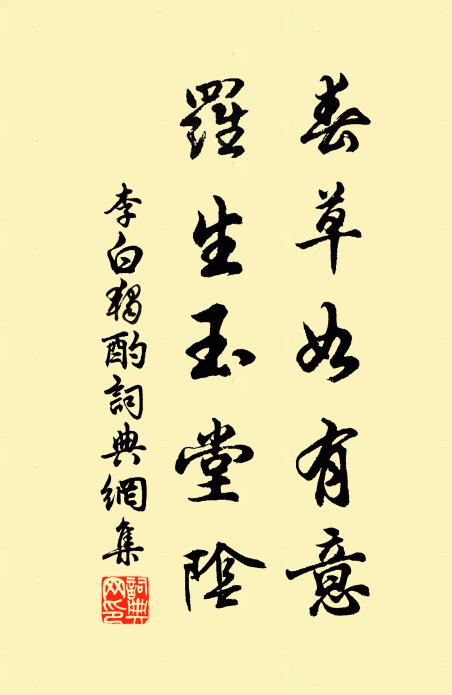 春草如有意
羅生玉堂陰
李白獨酌詞典網集
詞典網印